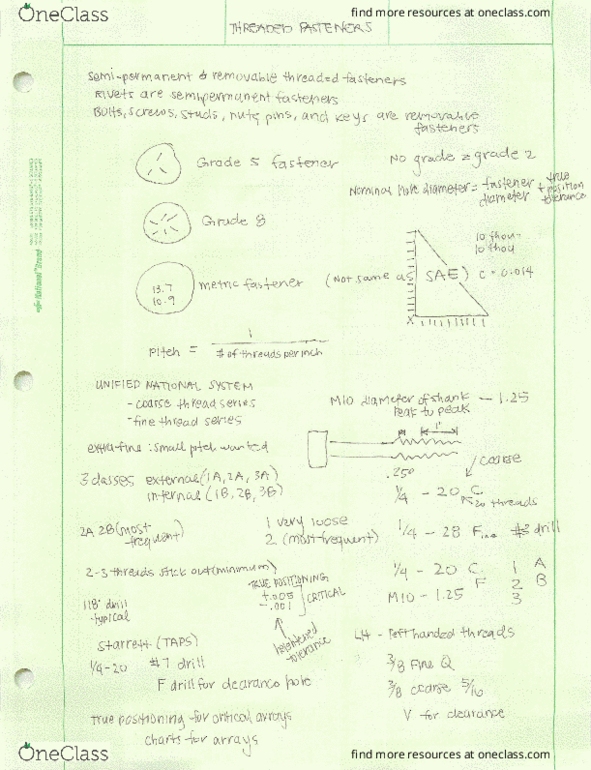 OneClass
find more resources at oneclass.com
THREADED FASTENERS
Semi-permanent & removable threaded fasteners
Rivets are semipermanent fasteners
Bolts, screws, studs, nuts, pins, and keys are removable
fasteners
Grade 5 fastener
No grade = grade 2
Nominal hole diameter = fastener diameter + true position tolerance
Grade 8
10 thou
10 thou
13.7
10.9
metric fastener (Not same as SAE)
C = 0.014
X
Pitch = 1 / # of threads per inch
UNIFIED NATIONAL SYSTEM
- coarse thread series
- fine thread series
M10 diameter of shank — 1.25
peak to peak
extra-fine : small pitch wanted
1"
3 classes external (1A, 2A, 3A)
internal (1B, 2B, 3B)
.250
coarse
1/4 - 20 C
20 threads
2A 2B (most frequent)
1 very loose
2 (most frequent)
1/4 - 28 Fine #3 drill
2-3 threads stick out (minimum)
1/4 - 20 C. 1 A
F 2 B
M10 - 1.25 3
TRUE POSITIONING
+.005
-.001
CRITICAL
118° drill
-typical
heightened tolerance
LH - left handed threads
Starrett (TAPS)
1/4-20 #7 drill
3/8 Fine Q
F drill for clearance hole
3/8 coarse 5/16
V for clearance
True positioning for critical arrays
charts for arrays
OneClass
find more resources at oneclass.com